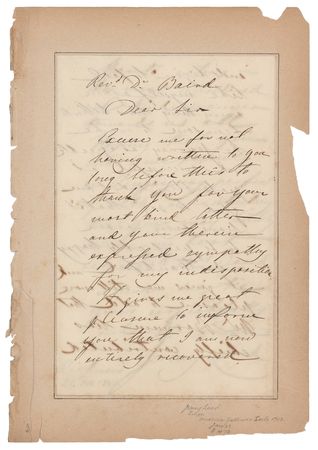 Revd. Dr. Baird
Dear Sir
Excuse me for not
having written to you
long before this to
thank you for your
most kind letter
and your therein
expressed sympathy
for my indisposition
It gives me great
pleasure to inform
you that I am now
entirely recovered.